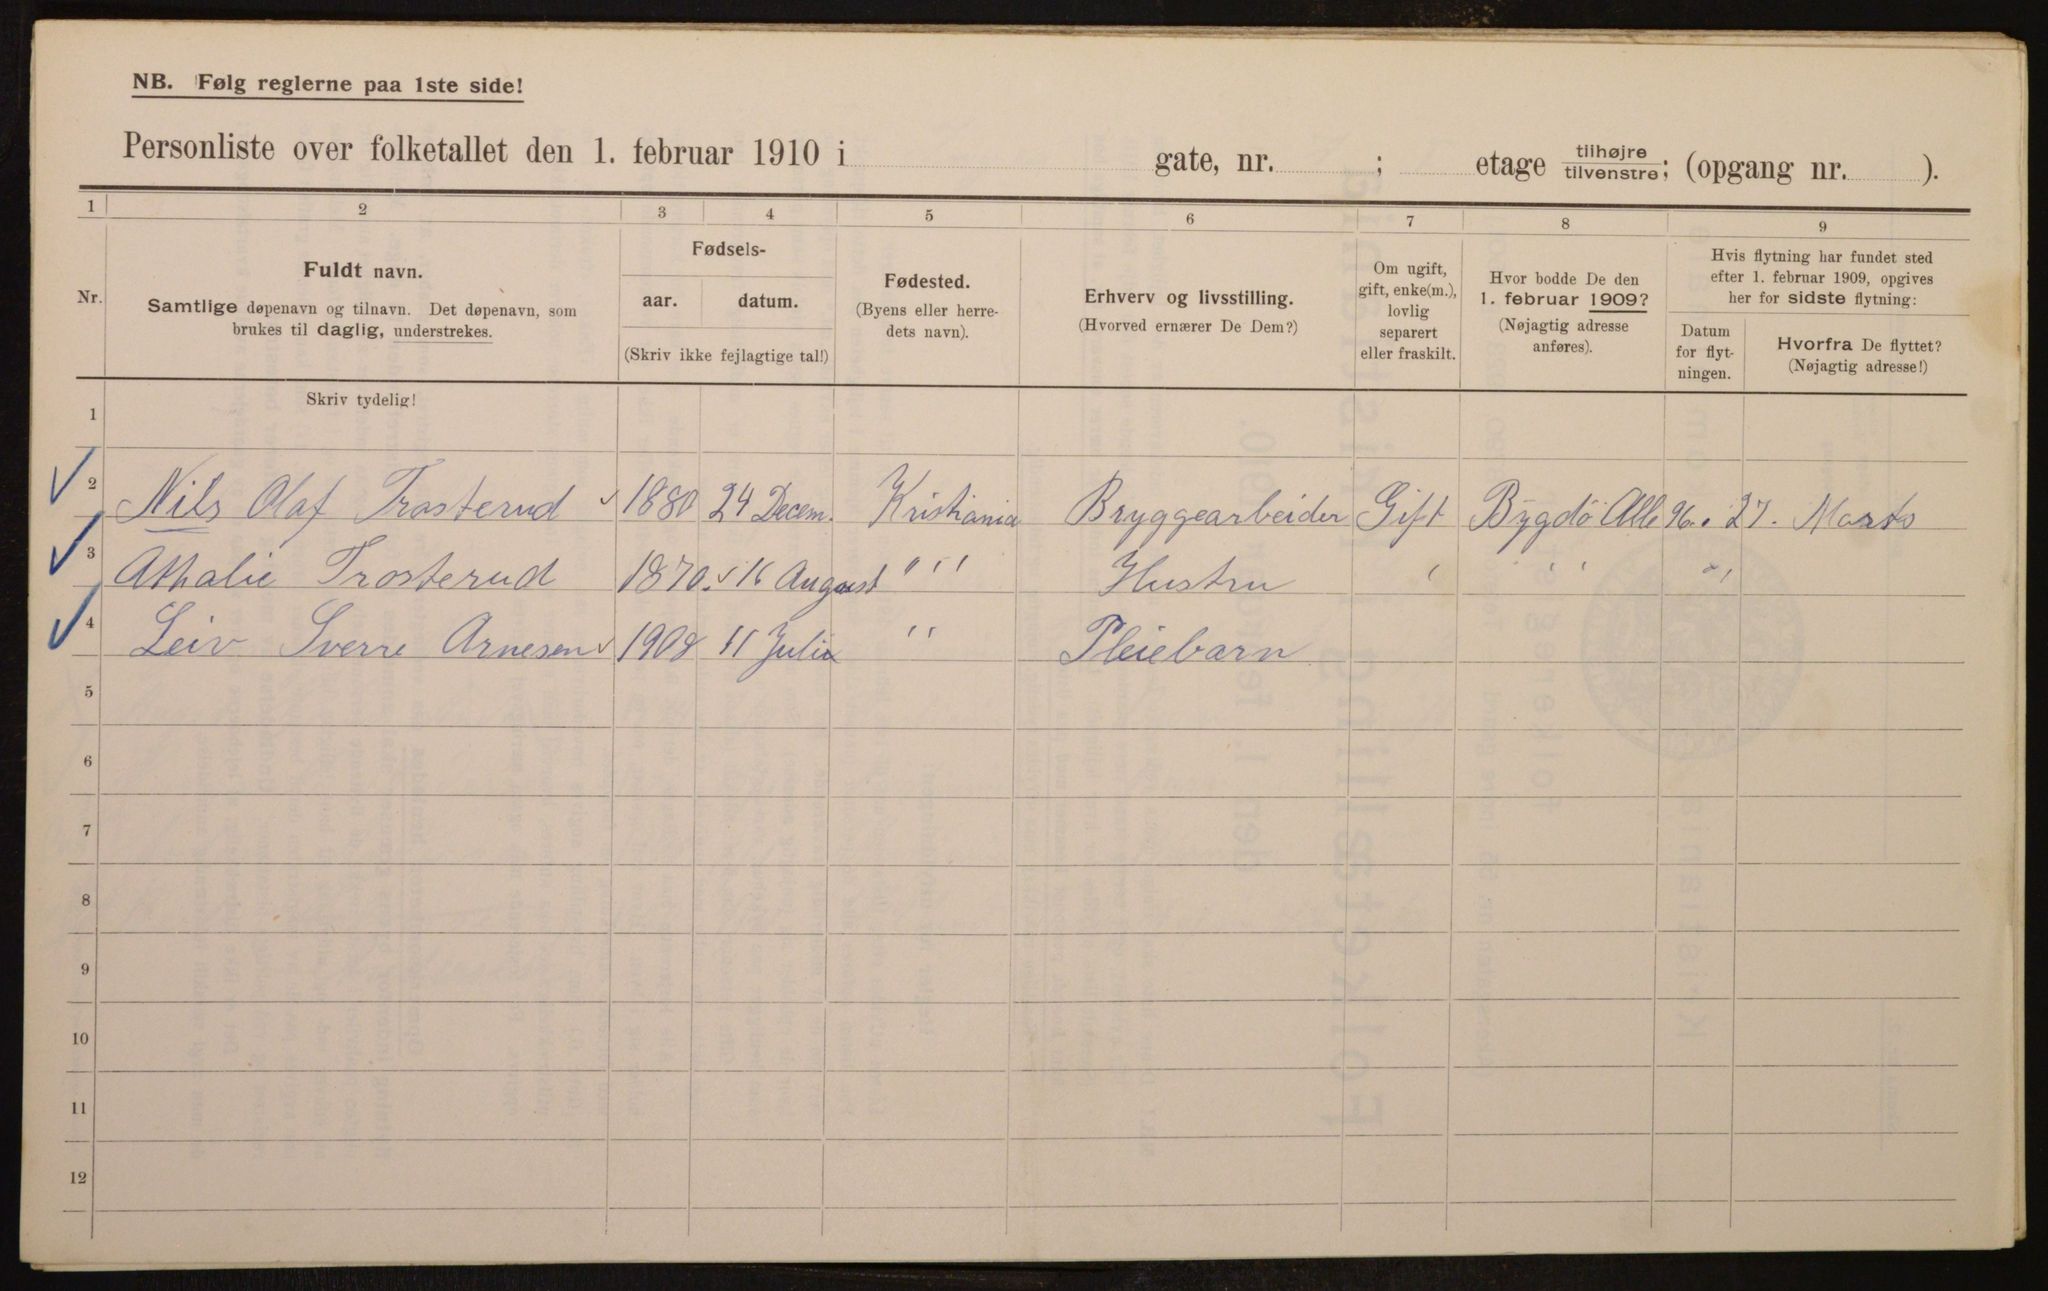 NB. Følg reglerne paa 1ste side!
Personliste over folketallet den 1. februar 1910 i gate, nr. ; etage tilhøjre/tilvenstre; (opgang nr. ).
1 2 3 4 5 6 7 8 9
Nr.
Fuldt navn.
Samtlige døpenavn og tilnavn. Det døpenavn, som
brukes til daglig, understrekes.
Fødsels-
aar. datum.
(Skriv ikke fejlagtige tal!)
Fødested.
(Byens eller herre-
dets navn).
Erhverv og livsstilling.
(Hvorved ernærer De Dem?)
Om ugift,
gift, enke(m.),
lovlig
separert
eller fraskilt.
Hvor bodde De den
1. februar 1909?
(Nøjagtig adresse
anføres).
Hvis flytning har fundet sted
efter 1. februar 1909, opgives
her for sidste flytning:
Datum
for flyt-
ningen.
Hvorfra De flyttet?
(Nøjagtig adresse!)
Skriv tydelig!
1
2 Nils Olaf Trosterud 1880 24 Decem. Kristiania Bryggearbeider Gift Bygdö Alle 96. 27. Marts
3 Athalie Trosterud 1870. 16 August " ' ' Hustru ' ' ' "
4 Leiv Sverre Arnesen 1908 11 Juli ' ' Pleiebarn
5
6
7
8
9
10
11
12